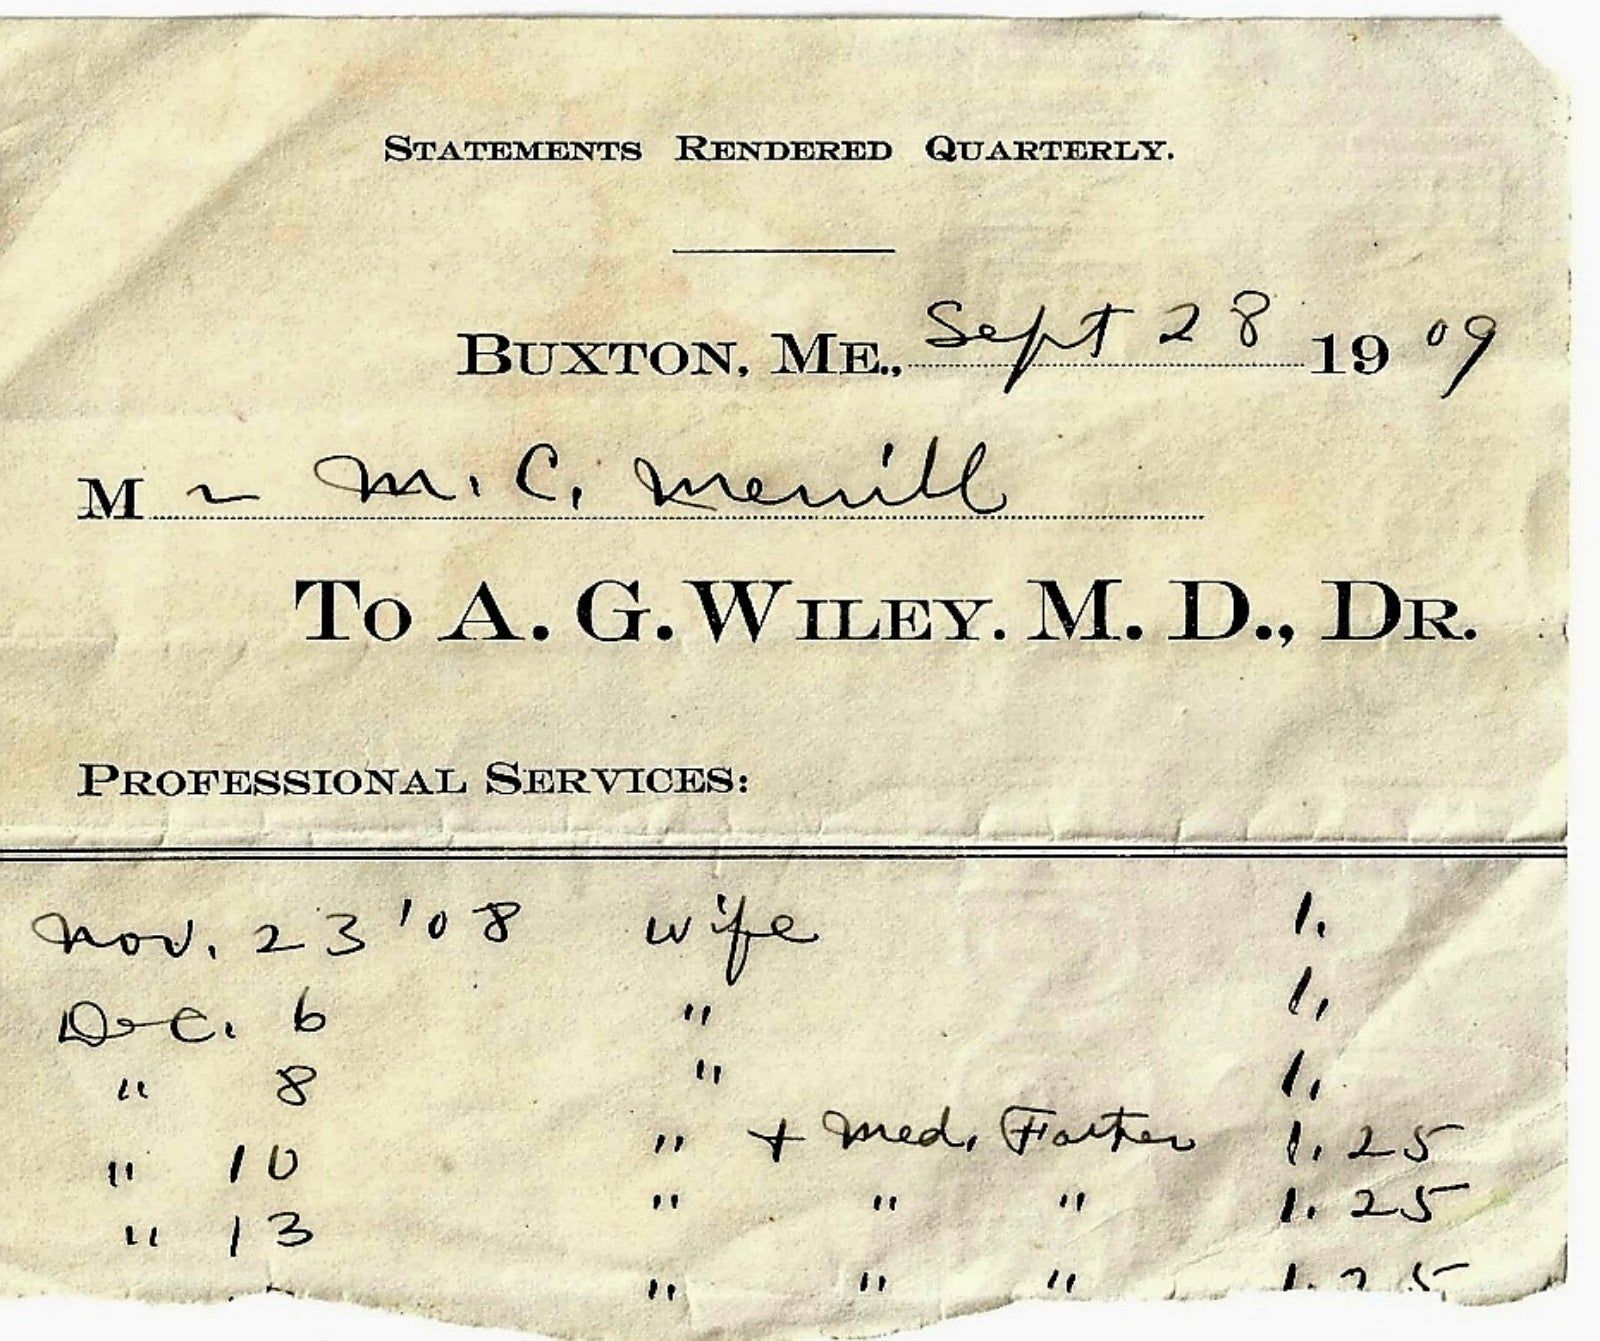 STATEMENTS RENDERED QUARTERLY.
BUXTON, ME., Sept 28 1909
Mr M. C. Merrill
TO A. G. WILEY. M. D., DR.
PROFESSIONAL SERVICES:
Nov. 23 '08 wife 1.
Dec. 6 " 1.
" 8 " 1.
" 10 " + Med. Father 1.25
" 13 " " " 1.25
" " " 1.25